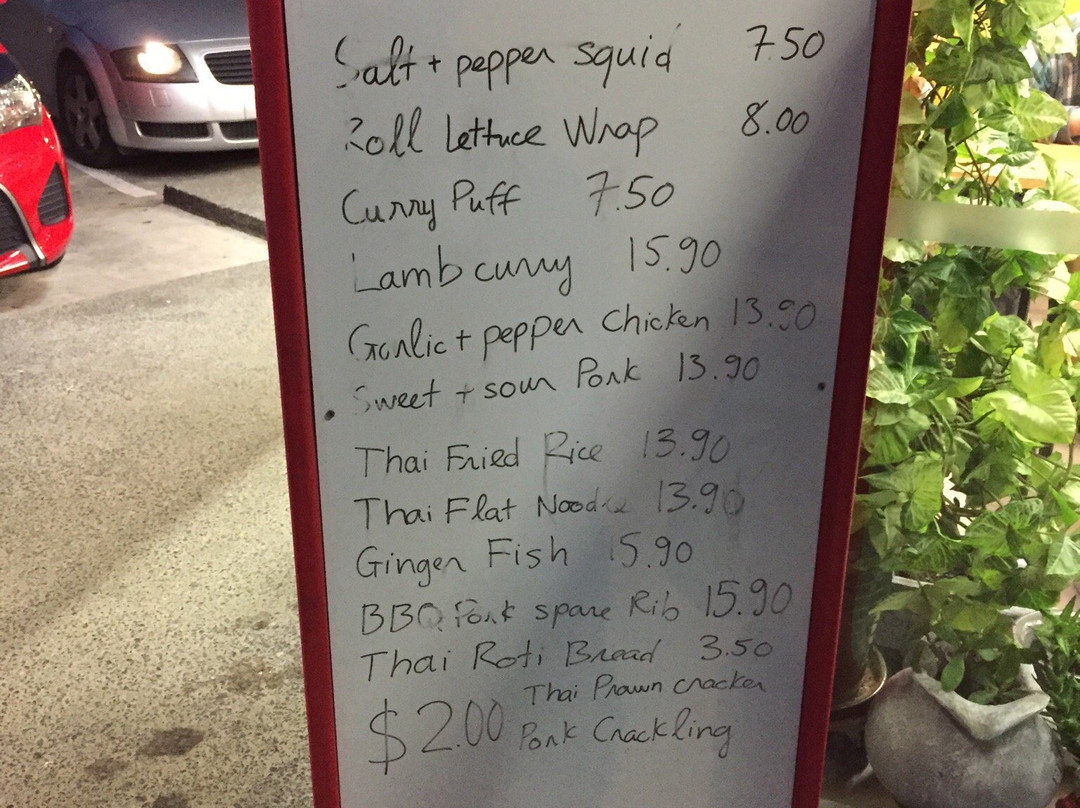 Salt + pepper squid 7.50
Roll Lettuce Wrap 8.00
Curry Puff 7.50
Lamb curry 15.90
Garlic + pepper Chicken 13.90
Sweet + sour Pork 13.90
Thai Fried Rice 13.90
Thai Flat Noodle 13.90
Ginger Fish 15.90
BBQ Pork spare Rib 15.90
Thai Roti Bread 3.50
$2.00 Thai Prawn cracker
Pork Crackling